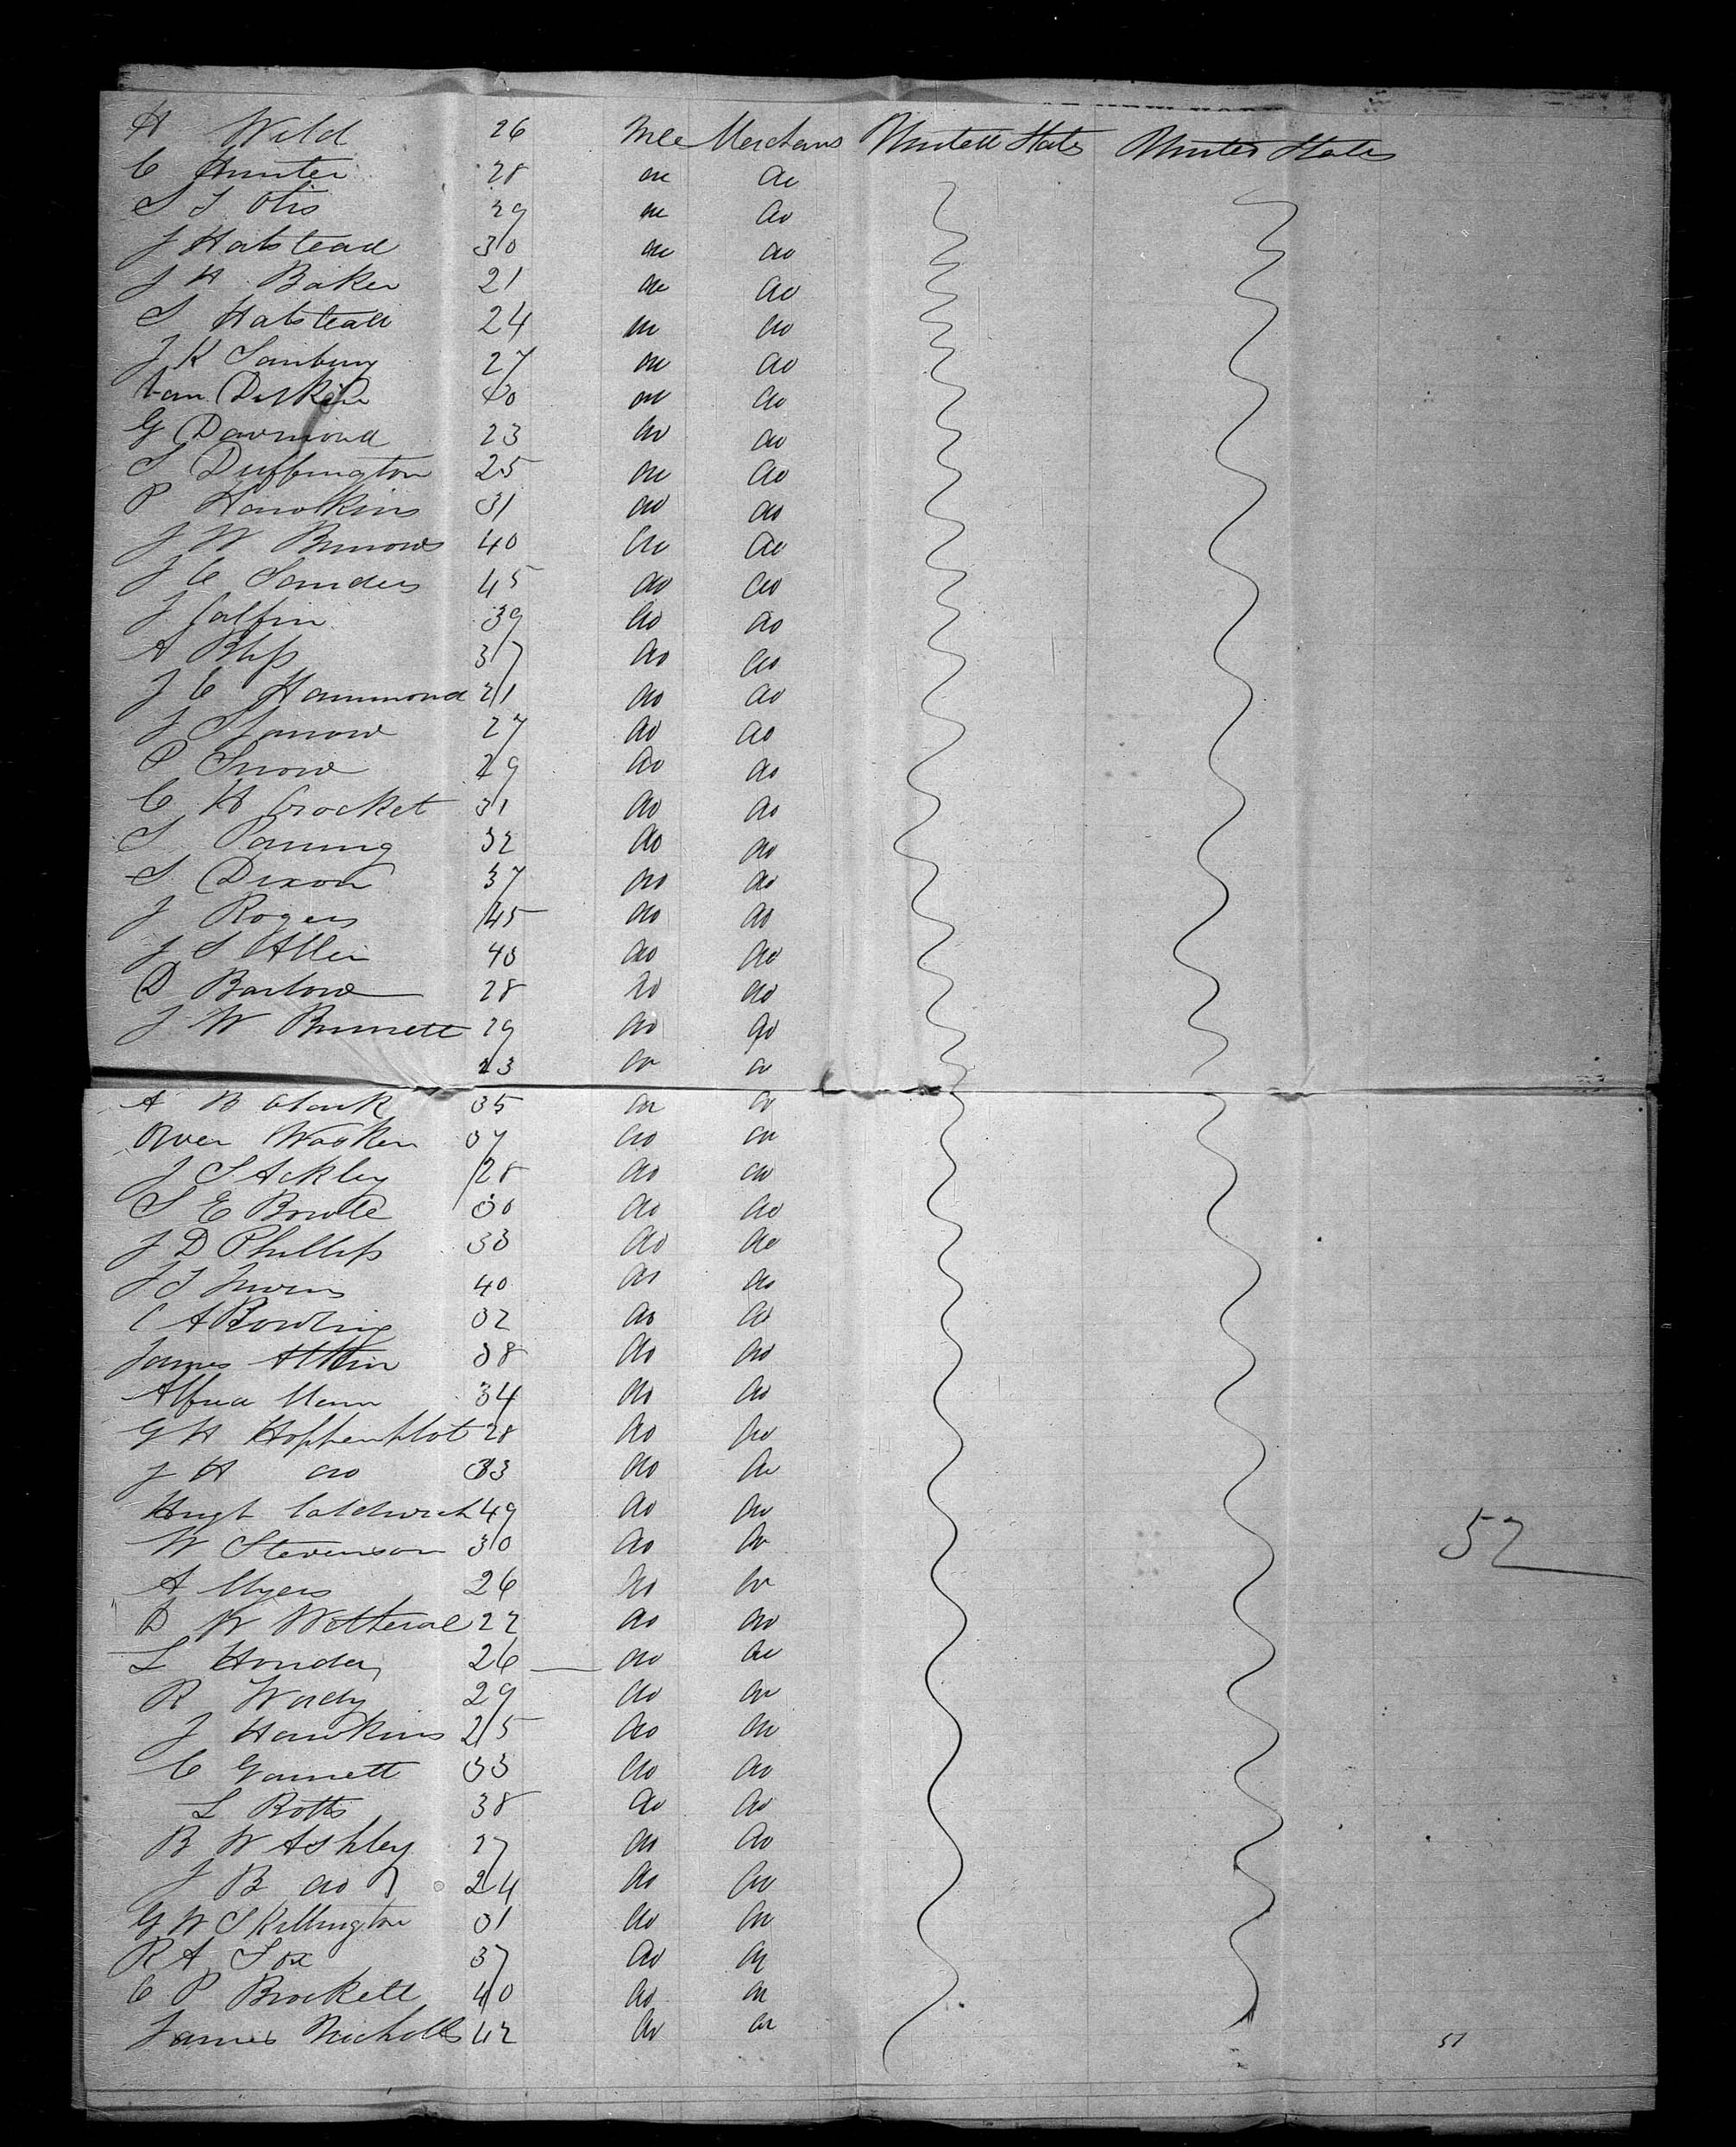 H Wild 26 Mle Merchans United States United States
C Hunter 28 do do
S S Otis 39 do do
J Halstead 30 do do
J H Baker 21 do do
S Halstead 24 do do
J K Sanbury 27 do do
30 do do
G Dawmond 23 do do
S Duffington 25 do do
P Hawkins 31 do do
J W Burrows 40 do do
J C Sanders 45 do do
J 39 do do
A Bliss 37 do do
J C Hammond 21 do do
J Sparrow 27 do do
P Snow 29 do do
C H Crocket 31 do do
S 32 do do
S Dixon 37 do do
J Rogers 45 do do
J S Allen 40 do do
D Barlow 28 do do
J W Burnett 29 do do
23 do do
A B Clark 35 do do
Owen Walker 37 do do
J S Ackley 28 do do
S E Bowlle 30 do do
J D Phillips 33 do do
J S 40 do do
C A Bowling 32 do do
James Atkin 38 do do
Alfred Mann 34 do do
G H Hoffenflot 28 do do
J H do 33 do do
Hugh 49 do do
W Stevenson 30 do do
52
A Myers 26 do do
D W Wetheral 22 do do
L 26 do do
R Wordy 29 do do
J Hawkins 25 do do
C Garnett 33 do do
L Botts 38 do do
B W Ashley 27 do do
J B do 24 do do
G W Skillington 31 do do
R A Fox 37 do do
C P Brockett 40 do do
James Nicholls 42 do do
51